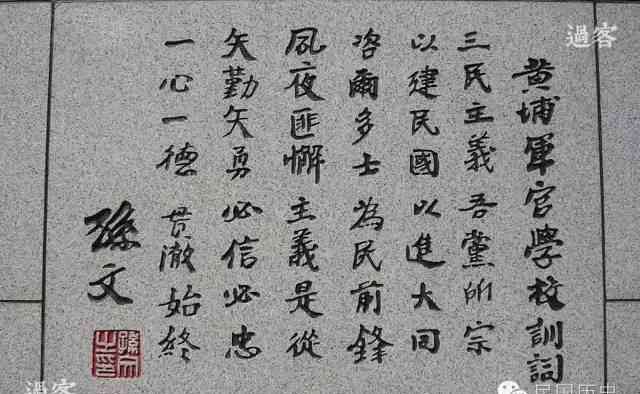 黃埔軍官學校訓詞
三民主義 吾黨所宗
以建民國 以進大同
咨爾多士 為民前鋒
夙夜匪懈 主義是從
矢勤矢勇 必信必忠
一心一德 貫澈始終
孫文
孫文之印
過客
過客
民国历史